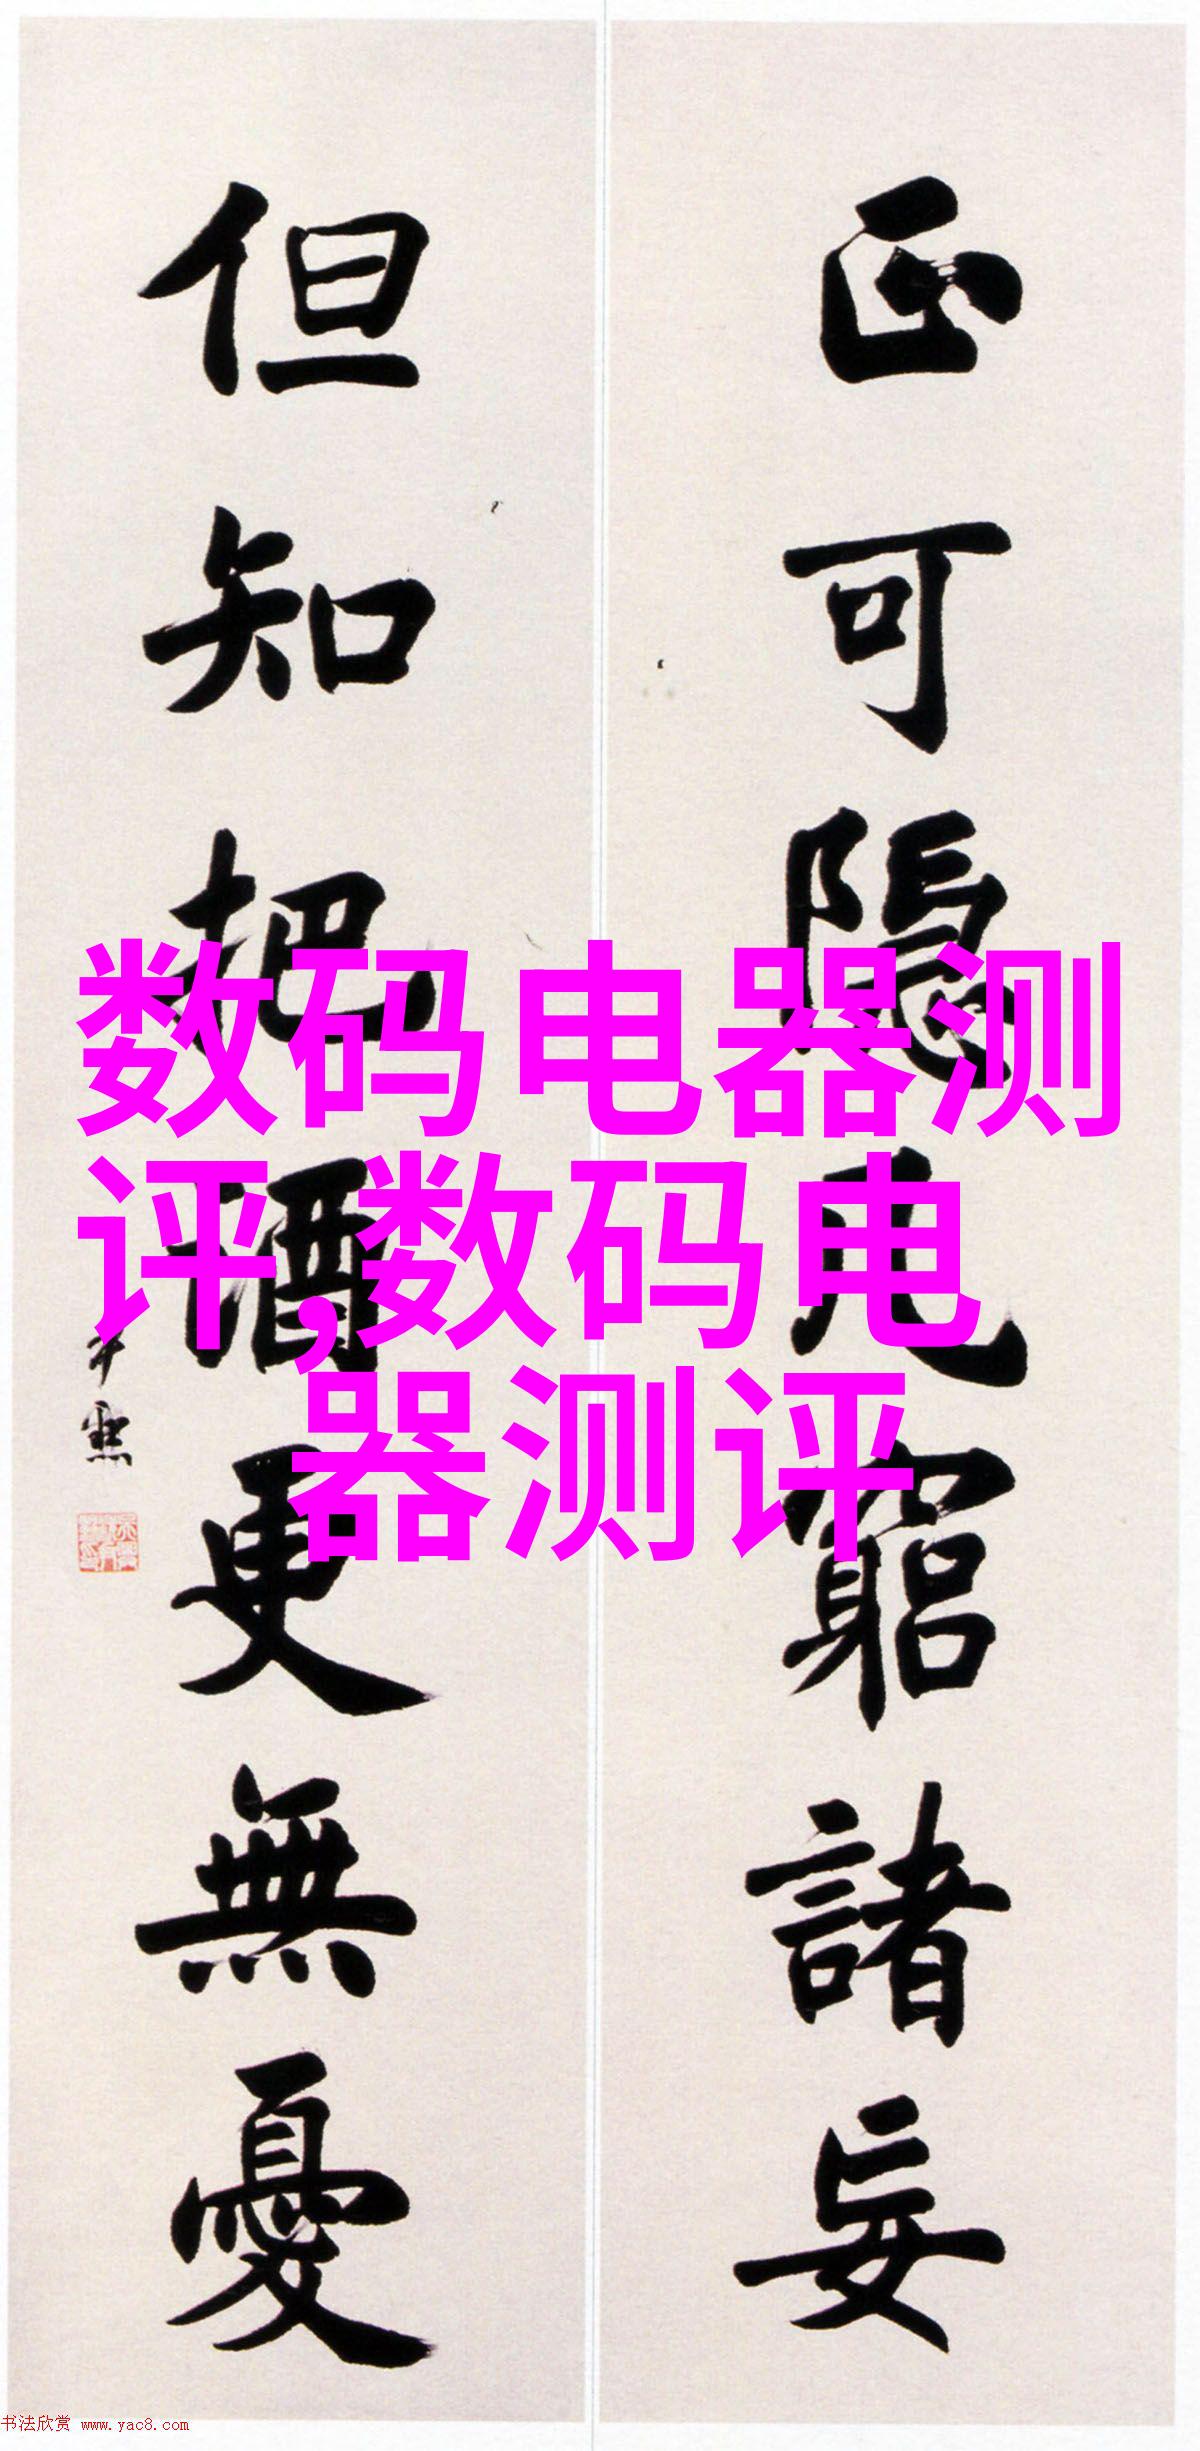 正可隱几窮諸妄
但知把酒更無憂
尹默
数码电器测
评,数码电
器测评
书法欣赏 www.yac8.com